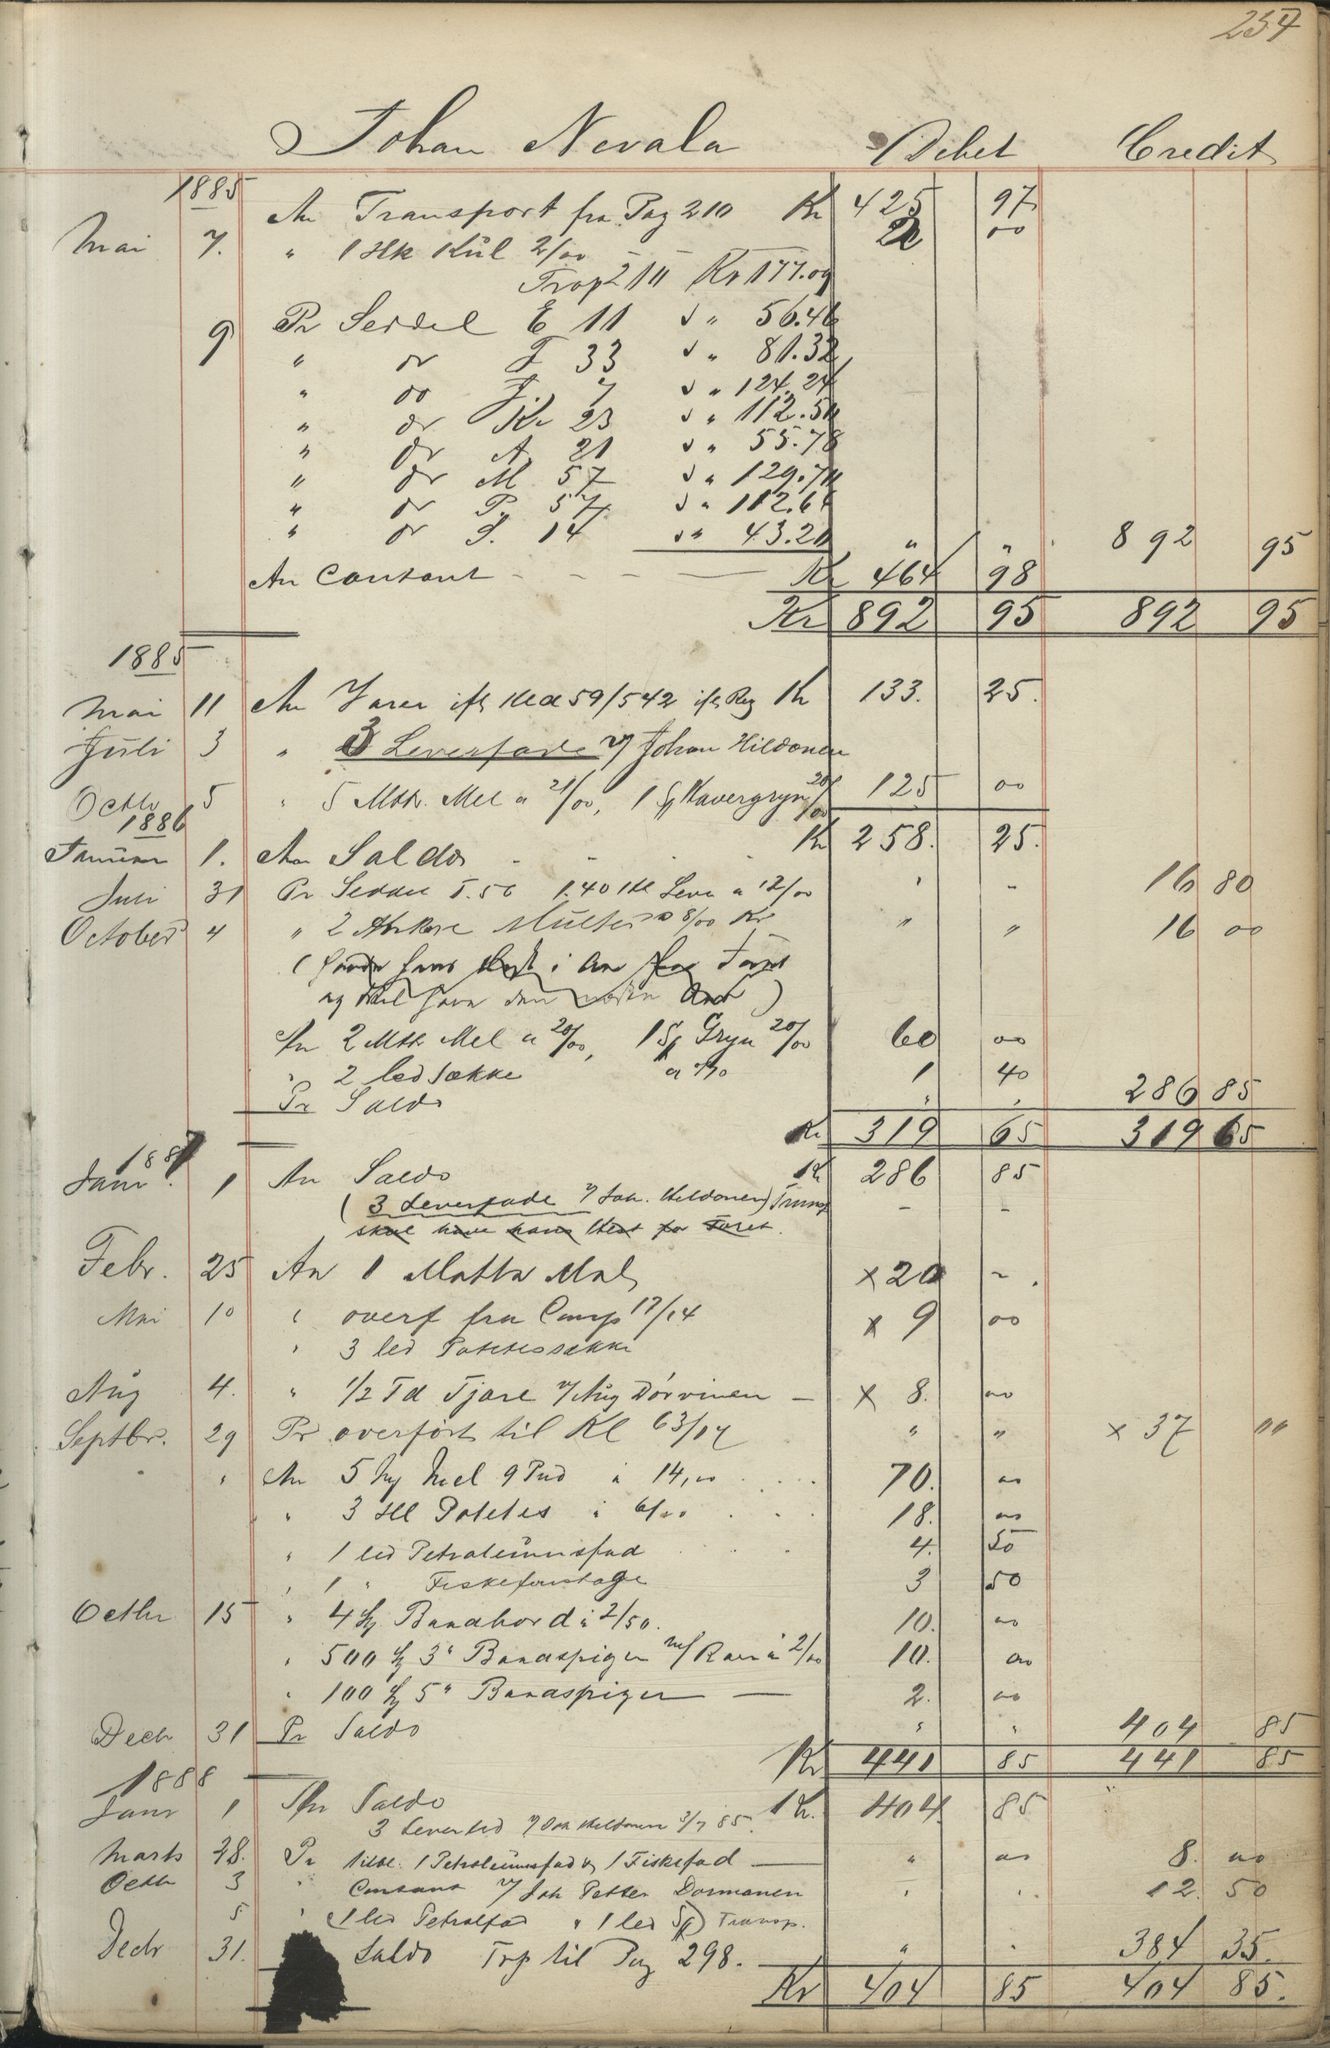 254
Johan Nevala Debet Credit
1885 An Transport fra Pag 210 Kr 425 97
Mai 7. " 1 Hk Kül 2/00 2 00
Trop 210 Kr 177.09
9 Pr Seddel E 11 " 56.46
" do F 33 " 81.32
" do J. 7 " 124.24
" do Kr 23 " 112.50
" do A. 21 " 55.78
" do M 57 " 129.70
" do P. 57 " 112.64
" do S. 14 " 43.20 " " 892 95
An Contant Kr 464 98
Kr 892 95 892 95
1885
Mai 11 An Varer ift Kled 59/542 ift Reg Kr 133. 25.
Juli 3 " 3 Leverfade v/ Johan Hildonen
Octbr 5 " 5 Mtt. Mel a 21/00, 1 Sk Havergryn 20/00 125 00
1886 Kr 258. 25.
Januar 1. An Saldo
Juli 31 Pr Seddel I. 56 1.40 Hl Lever a 12/00 " " 16 80
October 4 " 2 Ankere Multer a 8/00 Kr " " 16 00
An 2 Mtt Mel a 20/00, 1 Sk Gryn 20/00 60 00
" 2 led Sække a 70 1 40
Pr Saldo " " 286 85
Kr 319 65 319 65
1887
Janr. 1 An Saldo Kr 286 85
(3 Leverfade v/ Joh. Hildonen) Transp - -
skal have hans Hest for Foret.
Febr. 25 An 1 Matte Mel x 20 " .
Mai 10 " overf fra Comp 17/14 x 9 00
" 3 led Potetessække
Aug 4. " 1/2 Td Tjære v/ Aug Dorvinen - x 8. 00
Septbr. 29 Pr overført til Kl 63/14 " " x 37 ""
" An 5 Mel 9 Pud a 14,00 70. 00
" 3 Hl Potetes a 6/00 18. 00
" 1 led Petroleumsfad 4. 50
" 1 " Fiskefoustage 3 50
Octbr 15 " 4 Bandbord a 2/50. 10. 00
" 500 3" Baadspiger m/ Roer a 2/00 10. 00
" 100 5" Baadspiger 2. 00
Decbr 31 Pr Saldo " " 404 85
Kr 441 85 441 85
1888
Janr 1 An Saldo Kr. 404. 85
3 Leverfad v/ Joh Hildonen 3/7 85.
Marts 28. Pr tilbl. 1 Petroleumsfad & 1 Fiskefad " " 8. 00
Octbr 3 " Contant v/ Joh Petter Dormanen " " 12. 50
5 " (1 led Petrolfad " 1 led Sk) Transp.
Decbr 31. Saldo Trp til Pag 298. " " 384 35.
Kr 404 85 404 85.